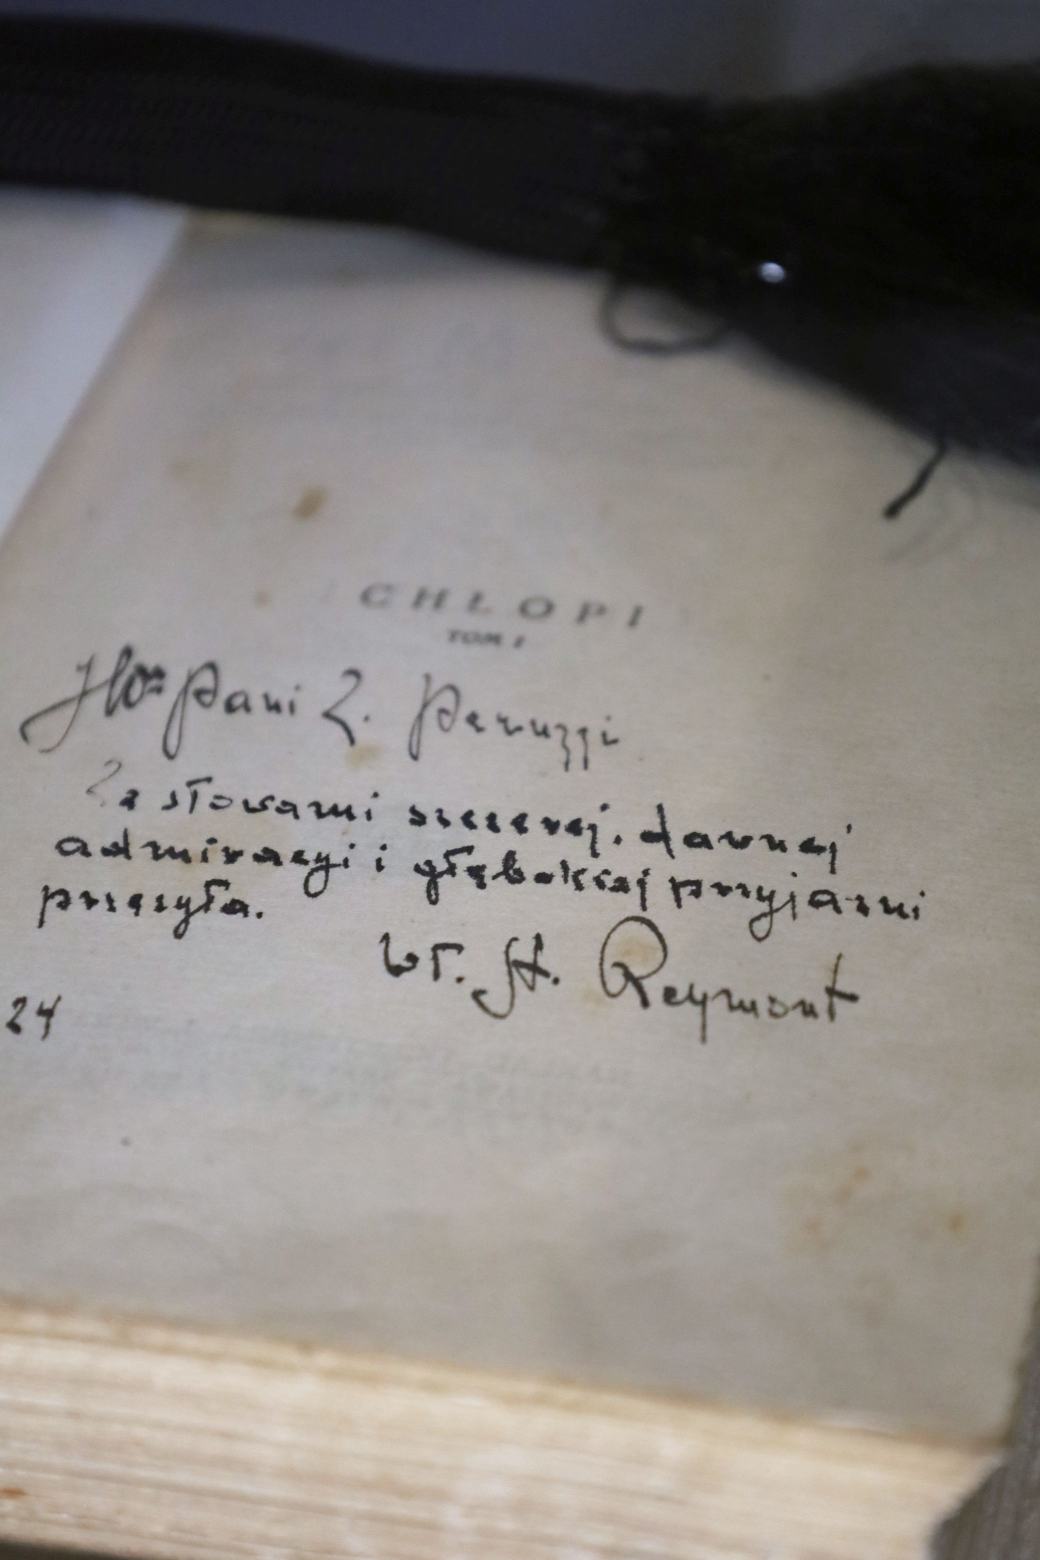 CHŁOPI
TOM I
JWna Pani Z. Peruzzi
Ze słowami szczerej, dawnej
admiracyi i głębokiej przyjaźni
przesyła.
Wł. St. Reymont
24